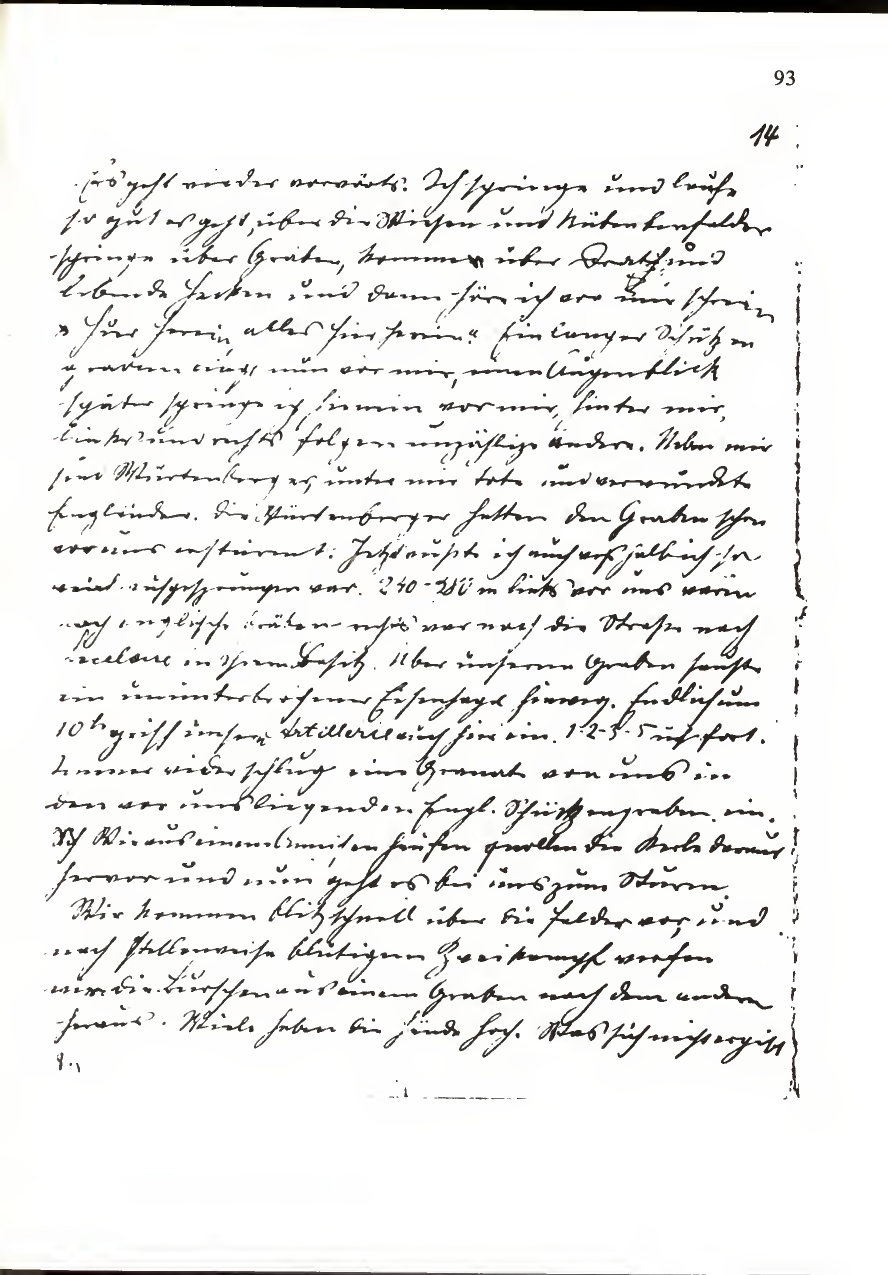 93
14
Es geht wieder vorwärts. Ich springe und laufe
so gut es geht, über die Wiesen und Rübenfelder
springe über Gräben, komme über Draht und
lebende Hecken und dann höre ich vor mir schrein
"Hier herein, alles hier herein". Ein langer Schützen
graben liegt nun vor mir, einen Augenblick
später springe ich hinein vor mir, hinter mir,
links und rechts folgen unzählige andere. Neben mir
sind Würtenberger, unter mir tote und verwundete
Engländer. Die Würtenberger hatten den Graben schon
vor uns gestürmt. Jetzt wußte ich auch weshalb ich so
weich eingesprungen war. 240-280 m links vor uns waren
noch englische Gräben rechts war noch die Straße nach
in ihrem Besitz. Über unseren Graben sauste
ein ununterbrochener Eisenhagel hinweg. Endlich um
10 h griff unsere Artillerie auch hier ein. 1-2-3-5 usf. fort.
Immer wieder schlug eine Granate von uns in
den vor uns liegenden Engl. Schützengraben ein.
Wie aus einem Ameisenhaufen quollen die Kerle daraus
hervor und nun geht es bei uns zum Sturm.
Wir kommen blitzschnell über die Felder vor, und
nach stellenweise blutigem Zweikampf werfen
wir die Burschen aus einem Graben nach dem andern
heraus. Viele heben die Hände hoch. Was sich nicht ergibt